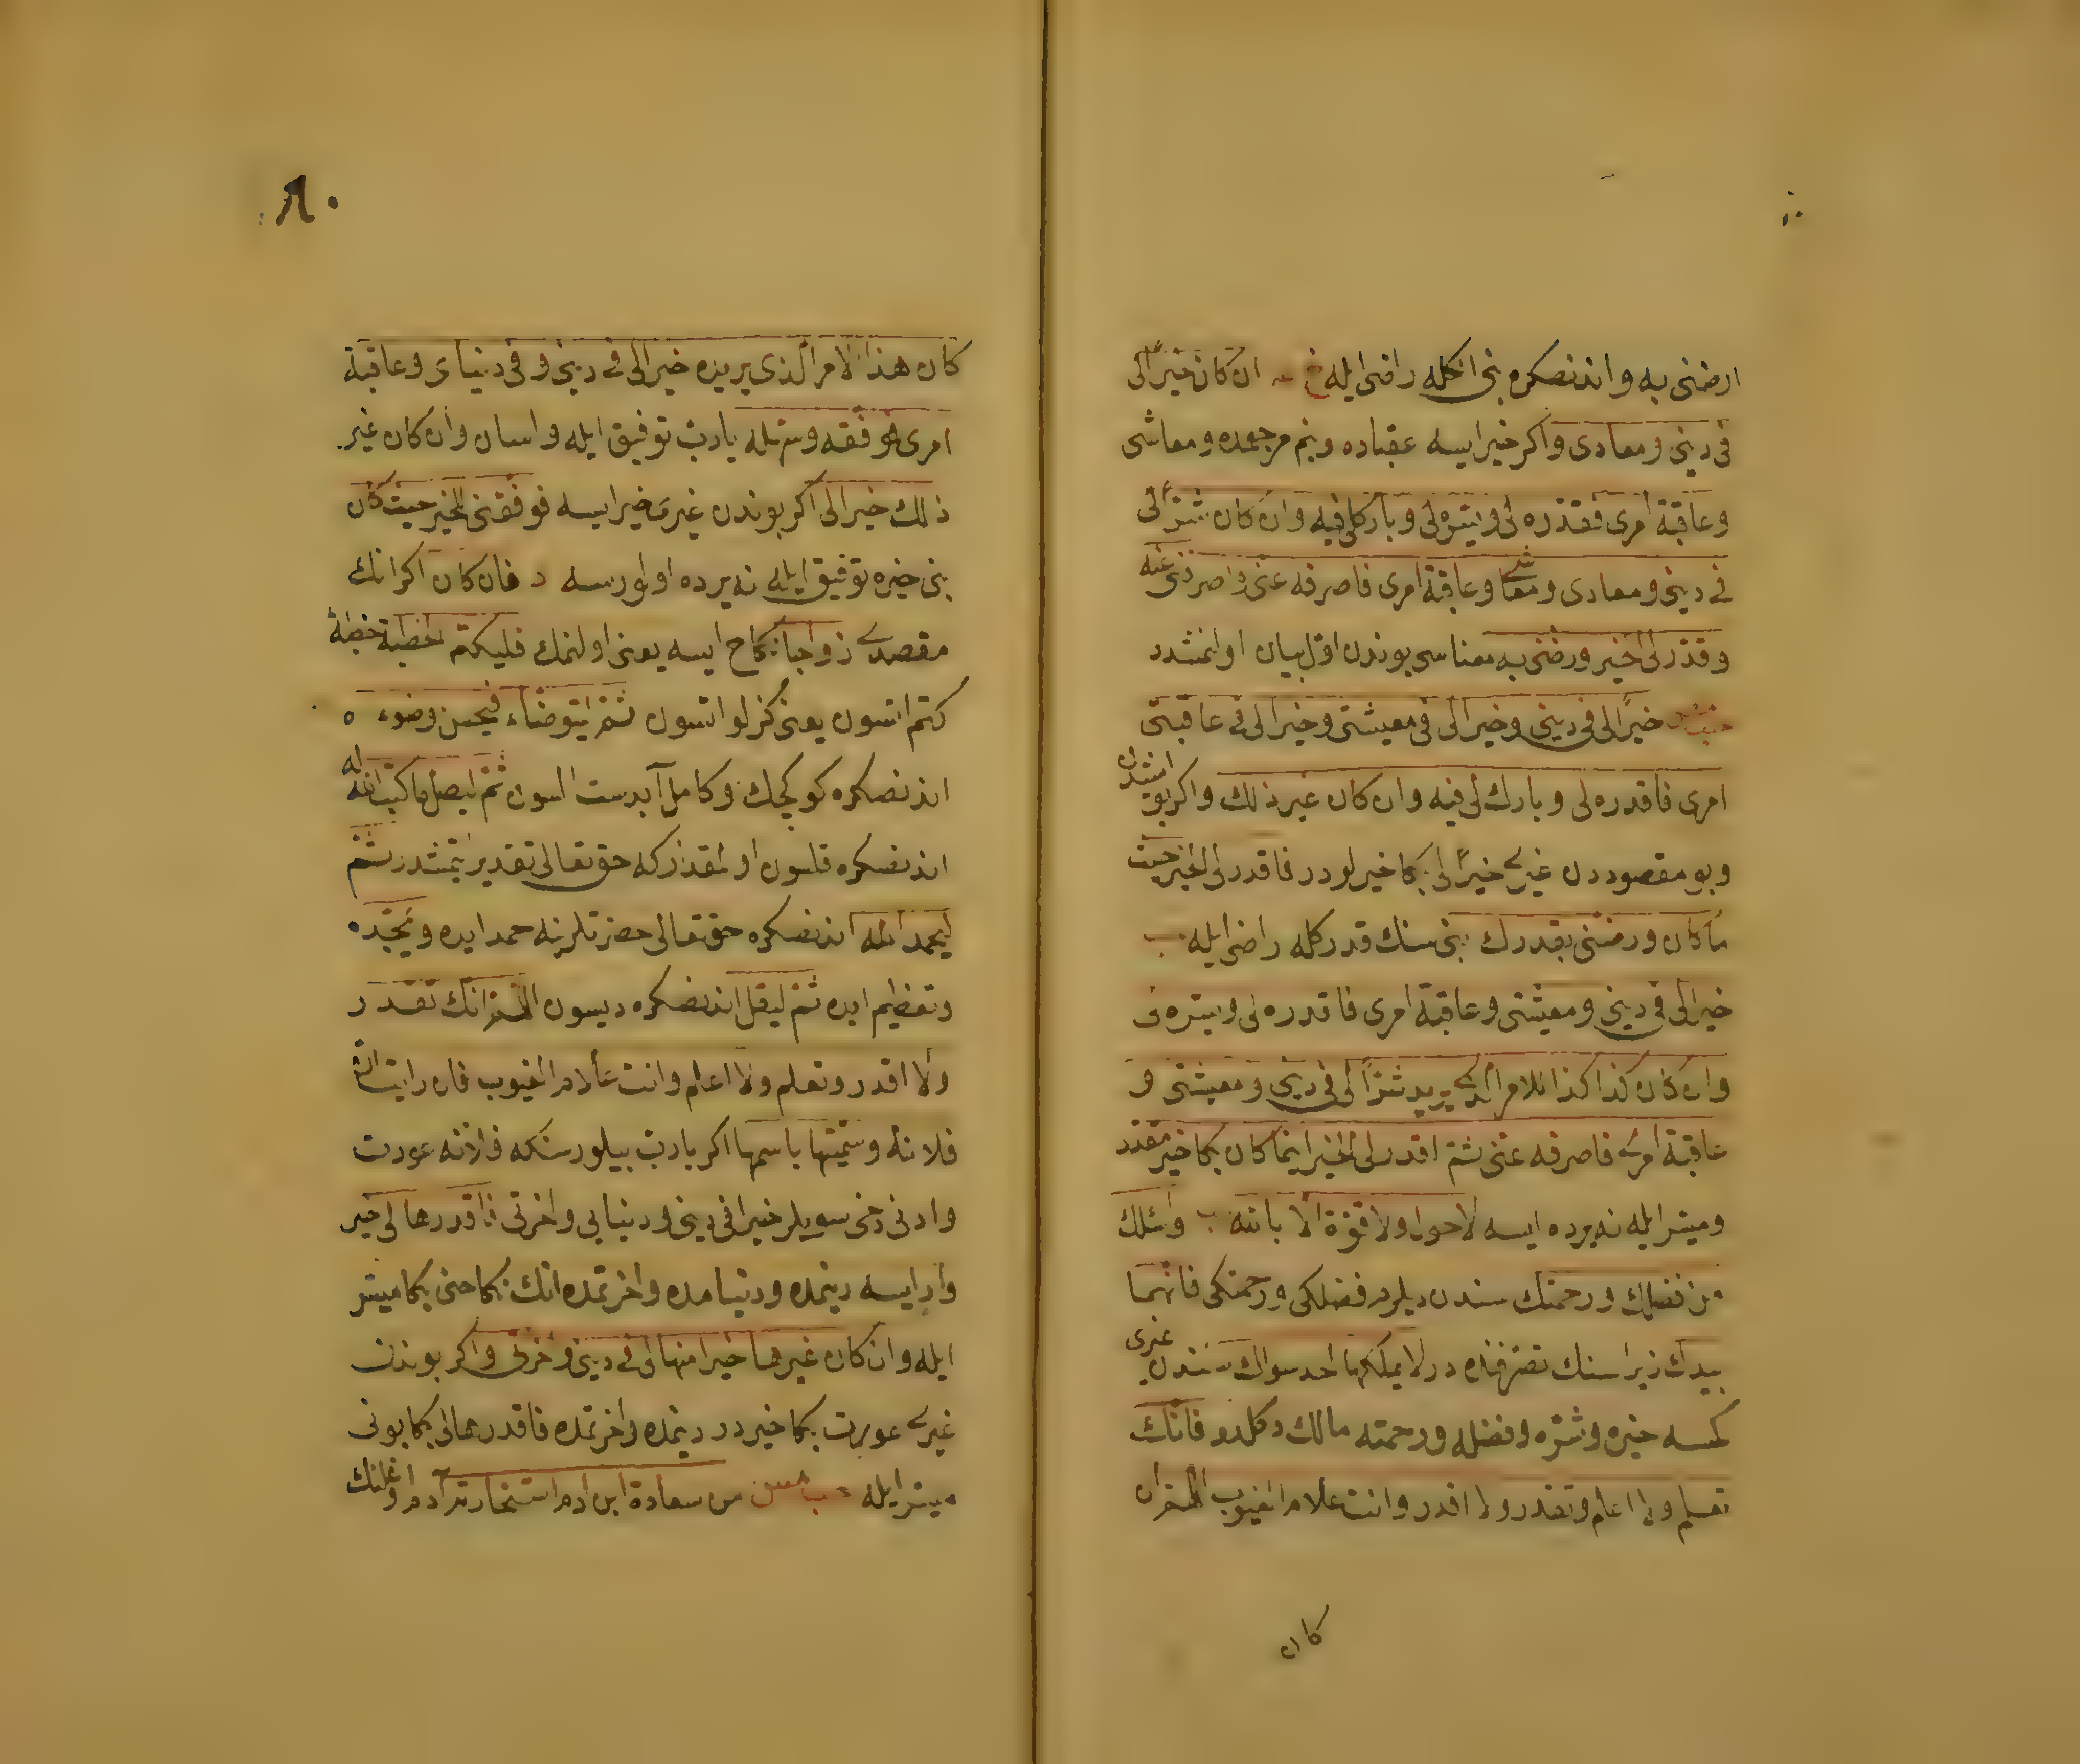 ارضنى به واندنصكره بنى انكله راضى ايله خ ان كان خيرا لى
فى دينى ومعادى واكر خير ايسه عقباده وبنم مرجعمده ومعاشى
وعاقبة امرى فقدره لى ويسره لى وبارك لى فيه وان كان شرا لى
فى دينى ومعادى ومعاشى وعاقبة امرى فاصرفه عنى واصرفنى عنه
وقدر لى الخير ورضنى به معناسى بوندن اول بيان اولنمشدر
خيرا لى فى دينى وخيرا لى فى معيشتى وخيرا لى فى عاقبتى
امرى فاقدره لى وبارك لى فيه وان كان غير ذلك واكر بو ايشدن
وبو مقصوددن غيرى خيرا لى بكا خيرلودر فاقدر لى الخير حيث
ما كان ورضنى بقدرك بنى سنك قدركله راضى ايله
خيرا لى فى دينى ومعيشتى وعاقبة امرى فاقدره لى ويسره لى
وان كان كذا كذا للامر الذى يريد شرا لى فى دينى ومعيشتى و
عاقبة امرى فاصرفه عنى ثم اقدر لى الخير اينما كان بكا خير مقدر
وميسر ايله نه يرده ايسه لا حول ولا قوة الا بالله واسئلك
من فضلك ورحمتك سندن ديلرم فضلكى ورحمتكى فانهما
بيدك زيرا سنك تصرفنده در لا يملكهما احد سواك سندن غيرى
كمسه خيره وشره وفضله ورحمته مالك دكلدر فانك
تعلم ولا اعلم وتقدر ولا اقدر وانت علام الغيوب اللهم ان
كان
٨٠
كان هذا الامر الذى يريده خيرا لى فى دينى وفى دنياى وعاقبة
امرى فوفقه وسهله يارب توفيق ايله واسان وان كان غير
ذلك خيرا لى اكر بوندن غيرى خير ايسه فوفقنى للخير حيث كان
بنى خيره توفيق ايله نه يرده اولورسه د فان كان اكر انك
مقصدى زواجا نكاح ايسه يعنى اولنمك فليكتم الخطبة خطبة
كتم اتسون يعنى كزلو اتسون ثم ليتوضاء فيحسن وضوءه
اندنصكره كوكجك وكامل آبدست السون ثم ليصل ما كتب الله له
اندنصكره قلسون او مقدار كه حق تعالى تقدير ايتمشدر ثم
ليحمد الله اندنصكره حق تعالى حضرتلرينه حمد ايده ويمجده
وتعظيم ايده ثم ليقل اندنصكره ديسون اللهم انك تقدر
ولا اقدر وتعلم ولا اعلم وانت علام الغيوب فان رايت ان
فلانة وسميتها باسمها اكر يارب بيلورسنكه فلانه عورت
وادنى دخى سويلر خيرا فى دينى ودنيايى واخرتى فاقدرها لى خير
وار ايسه دينمده ودنيامده واخرتمده انك نكاحنى بكا ميسر
ايله وان كان غيرها خيرا منها لى فى دينى واخرتى واكر بوندن
غيرى عورت بكا خيردر دينمده واخرتمده فاقدرها لى بكا بونى
ميسر ايله حب مس من سعادة ابن ادم استخارته آدم اوغلنك